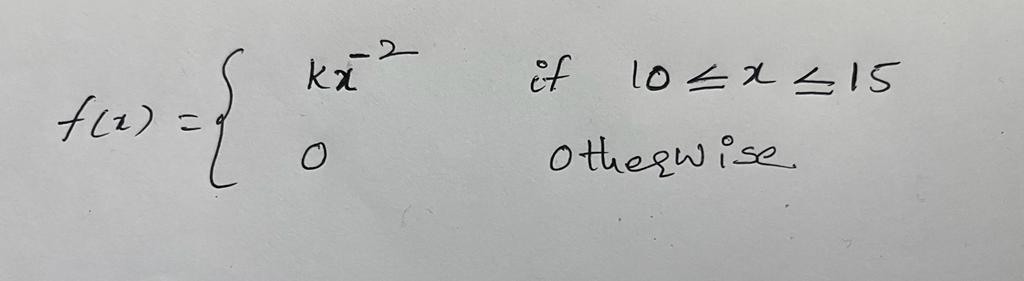 f(x) = { kx⁻² if 10 ≤ x ≤ 15
0 otherwise.